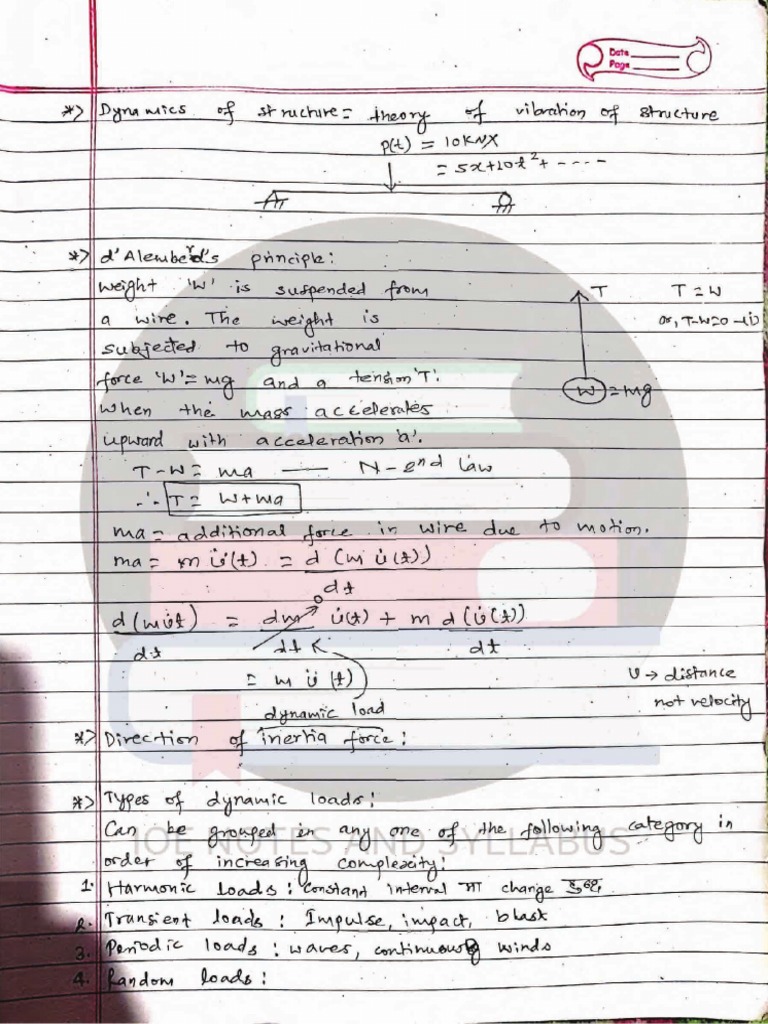 Date
Page
*> Dynamics of structure = theory of vibration of structure
p(t) = 10KNX
= 5x+10t²+ ----
*> d'Alemberd's principle:
weight 'W' is suspended from
a wire. The weight is
subjected to gravitational
force 'W'= mg and a tension 'T'.
When the mass accelerates
upward with acceleration 'a'.
T
T = W
or, T-W=0 -(i)
W = mg
T-W= ma — N-2nd law
∴ T= W+ma
ma = additional force in wire due to motion.
ma = m ü(t) = d (m u̇(t))
dt
d(mu̇t) = dm u̇(t) + m d(u̇(t))
dt dt dt
0
= m ü (t)
dynamic load
U → distance
not velocity
*> Direction of inertia force:
*> Types of dynamic loads:
Can be grouped in any one of the following category in
order of increasing complexity:
IOE NOTES AND SYLLABUS
1. Harmonic loads: constant interval मा change हुने.
2. Transient loads: Impulse, impact, blast
3. Periodic loads: waves, continuous winds
4. Random loads: